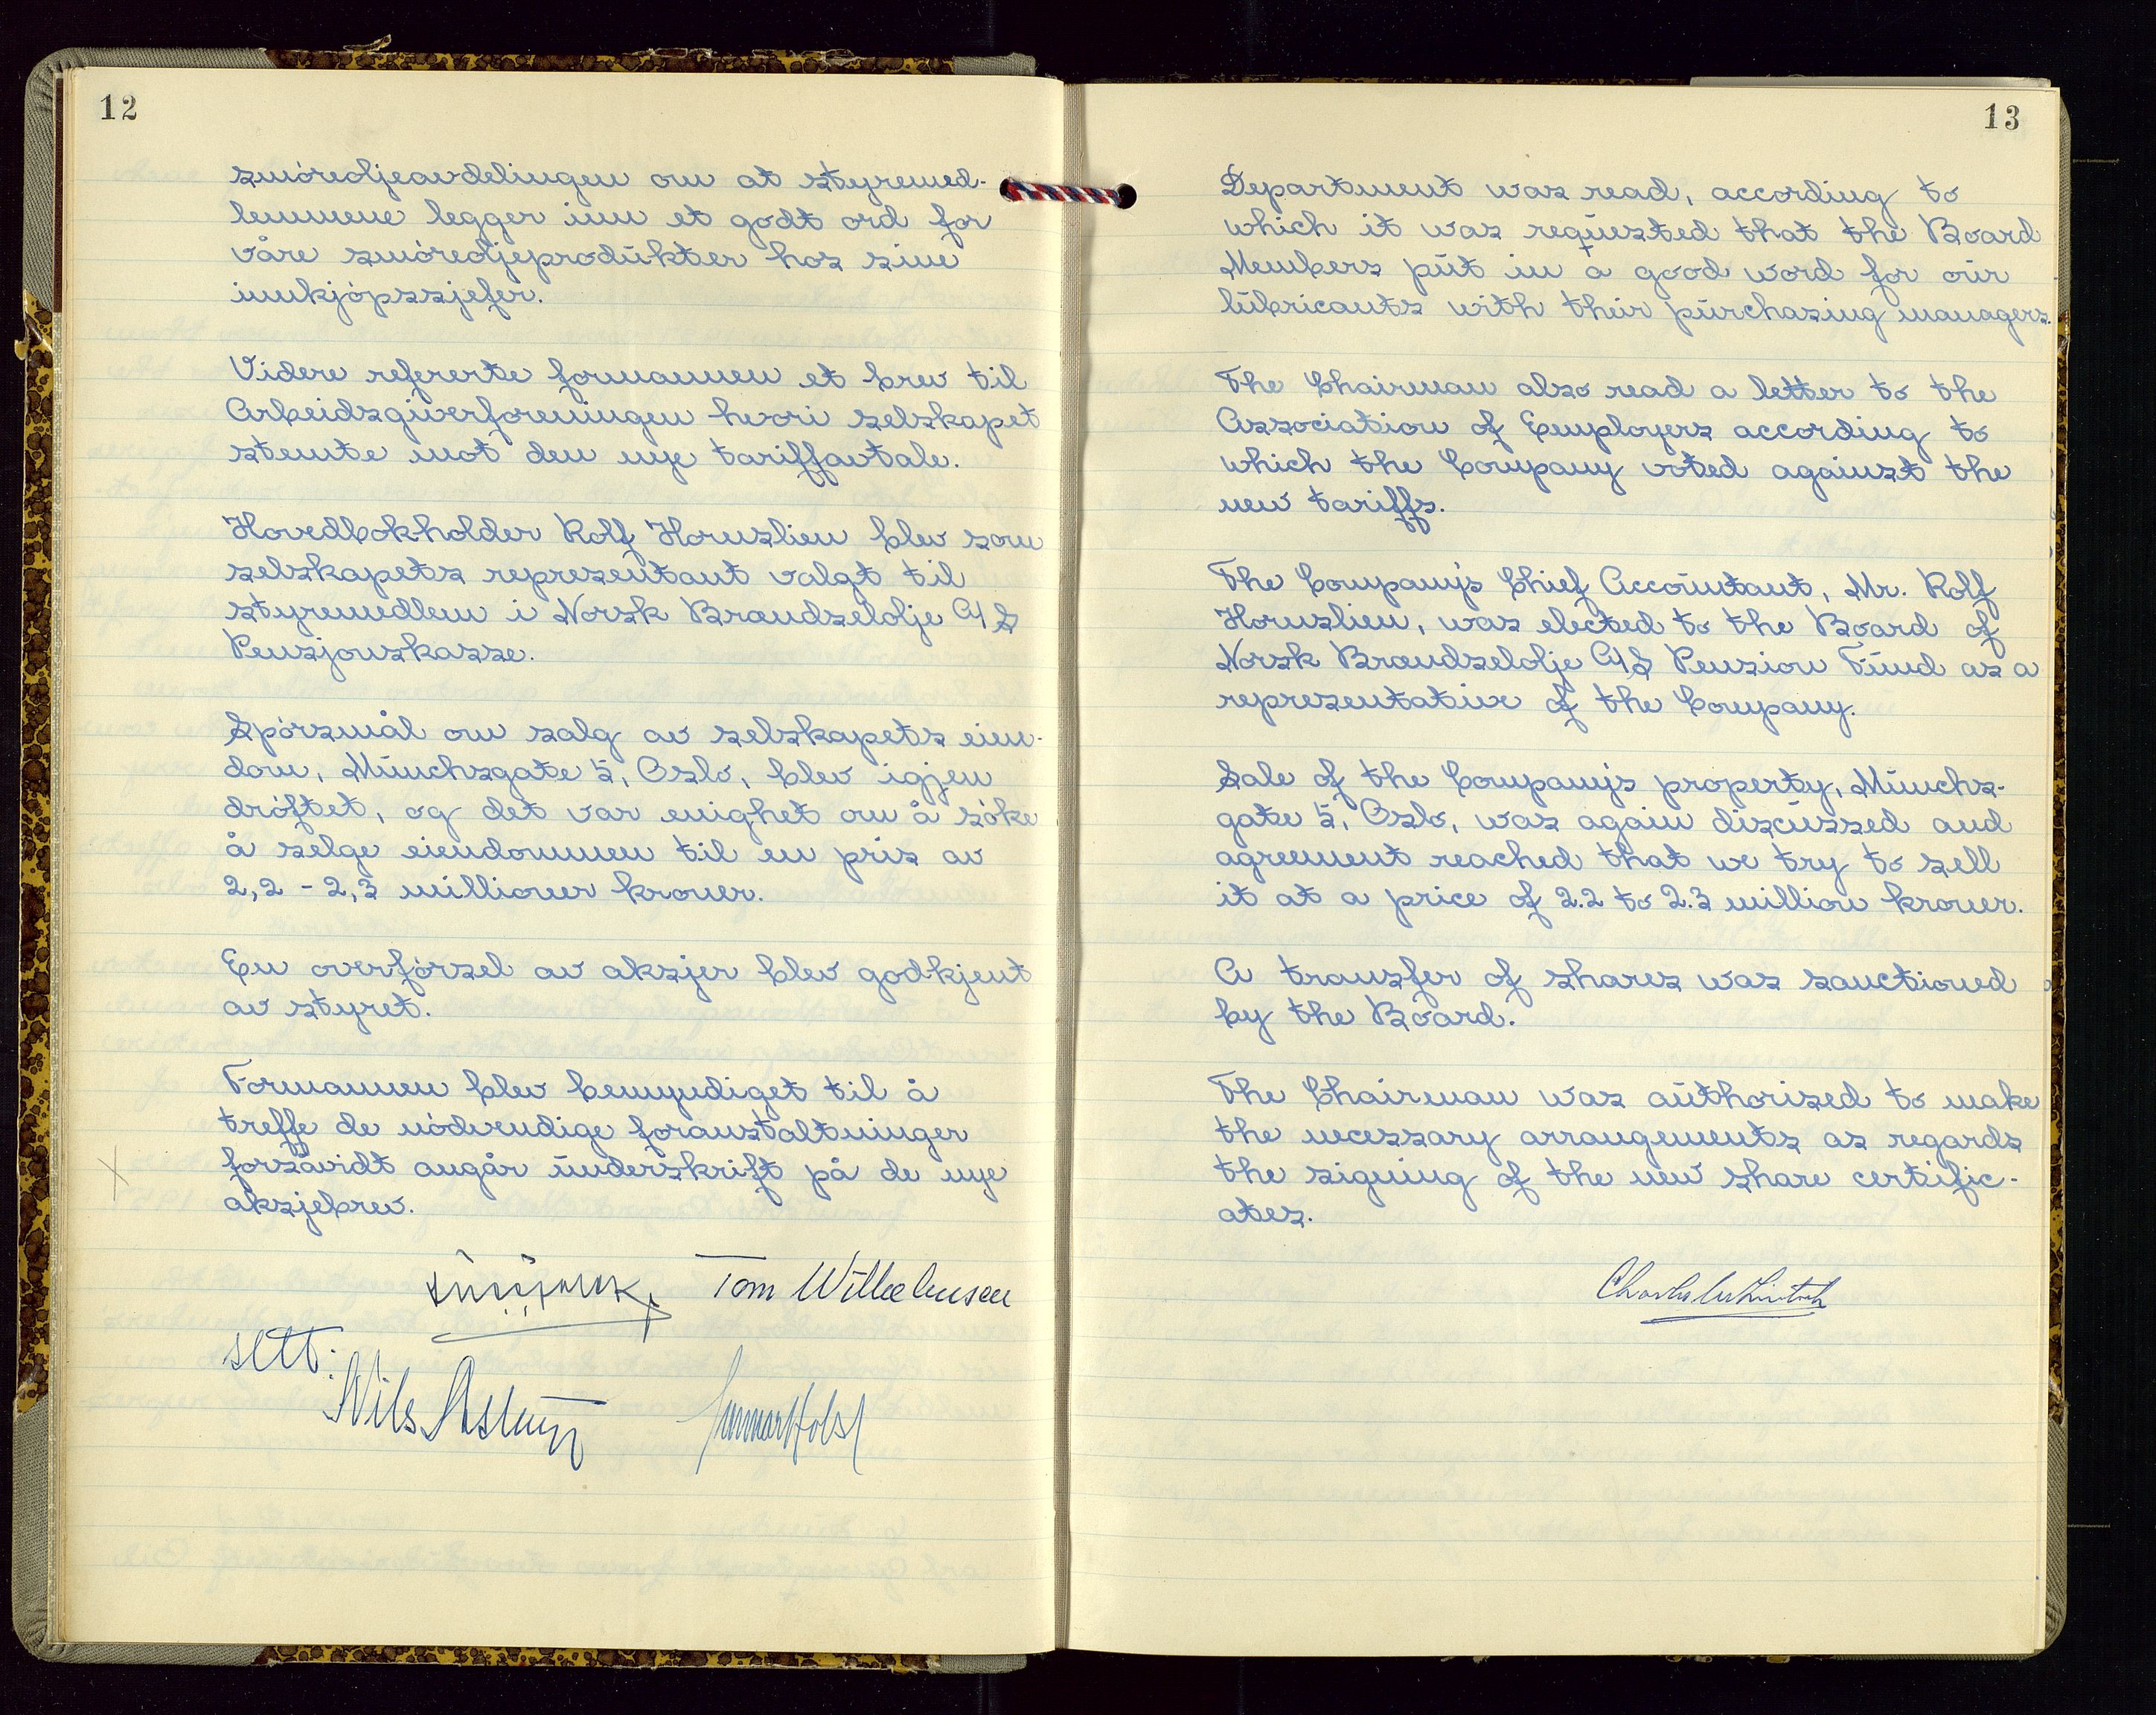 12
smøreoljeavdelingen om at styremed-
lemmene legger inn et godt ord for
våre smøreoljeprodukter hos sine
innkjøpssjefer.
Videre refererte formannen et brev til
Arbeidsgiverforeningen hvori selskapet
stemte mot den nye tariffavtale.
Hovedbokholder Rolf Hornslien blev som
selskapets representant valgt til
styremedlem i Norsk Brændselolje A/S
Pensjonskasse.
Spørsmål om salg av selskapets eien-
dom, Munchsgate 5, Oslo, blev igjen
drøftet, og det var enighet om å søke
å selge eiendommen til en pris av
2,2 - 2,3 millioner kroner.
En overførsel av aksjer blev godkjent
av styret.
Formannen blev bemyndiget til å
treffe de nødvendige foranstaltninger
forsåvidt angår underskrift på de nye
aksjebrev.
Tom Wilhelmsen
sett:
Nils Astrup Gunnar Holst
13
Department was read, according to
which it was requested that the Board
Members put in a good word for our
lubricants with their purchasing managers.
The Chairman also read a letter to the
Association of Employers according to
which the Company voted against the
new tariffs.
The Company's Chief Accountant, Mr. Rolf
Hornslien, was elected to the Board of
Norsk Brændselolje A/S Pension Fund as a
representative of the Company.
Sale of the Company's property, Munchs-
gate 5, Oslo, was again discussed and
agreement reached that we try to sell
it at a price of 2.2 to 2.3 million kroner.
A transfer of shares was sanctioned
by the Board.
The Chairman was authorized to make
the necessary arrangements as regards
the signing of the new share certific-
ates.